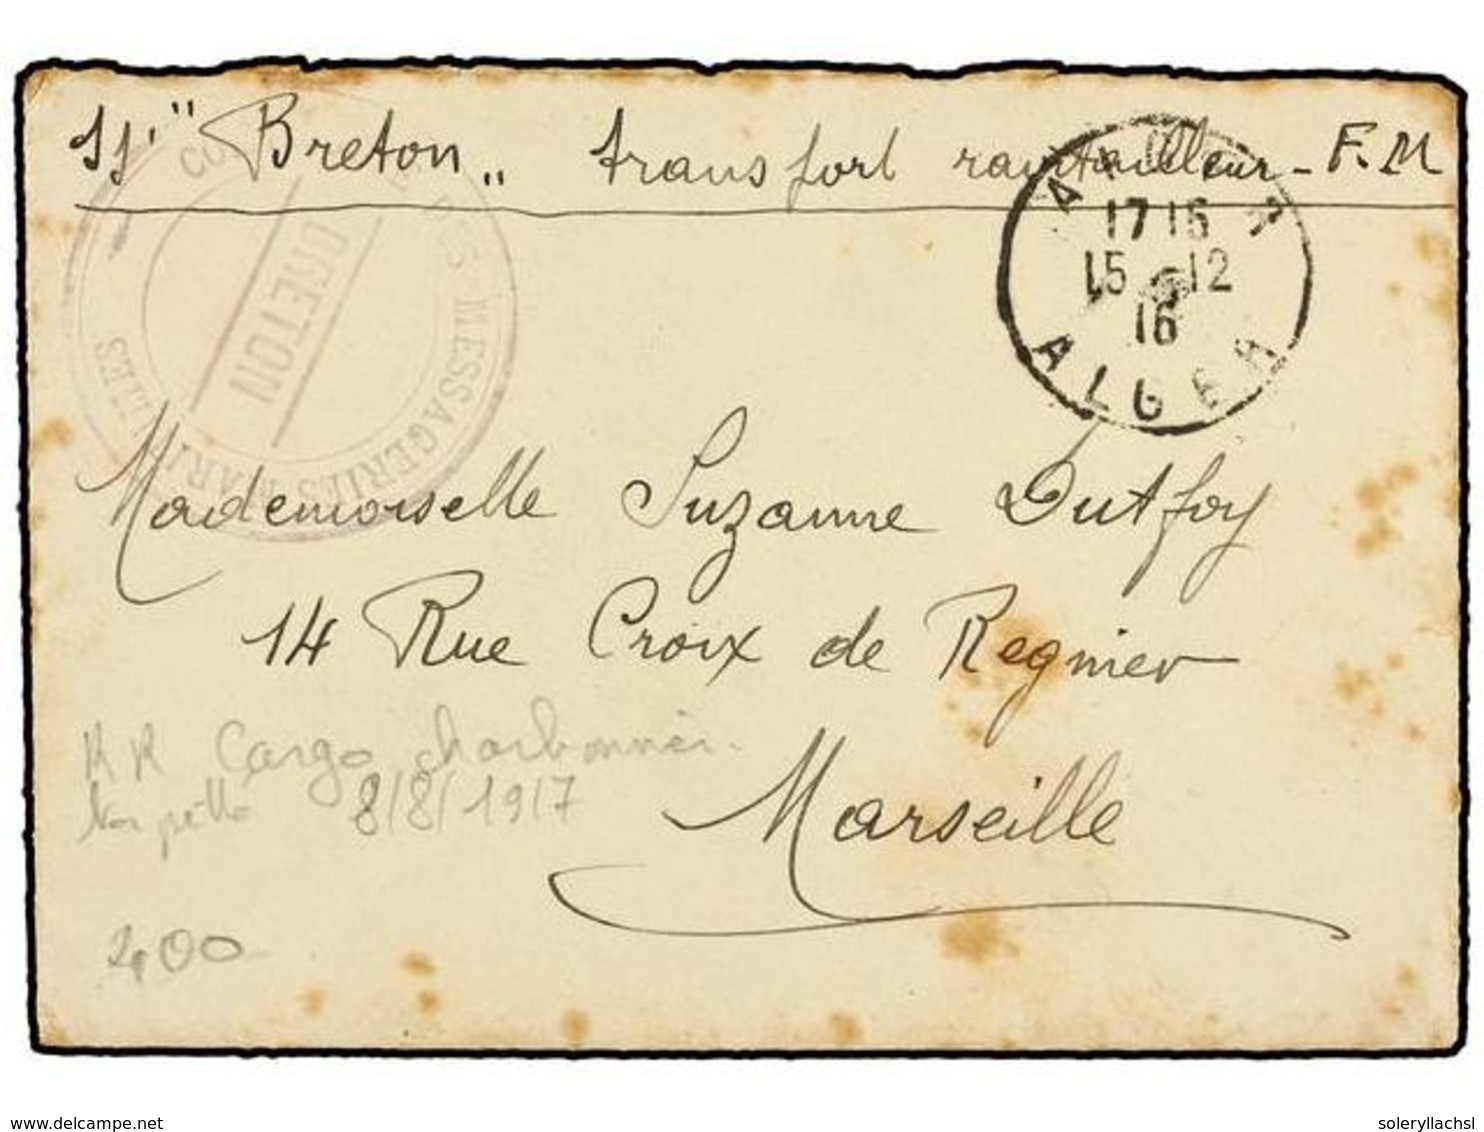 " Breton „ transport ravitailleur - F. M
BRETON
MESSAGERIES MARITIMES
17 15
15 12
16
ALGER
Mademoiselle Suzanne Dutfoy
14 Rue Croix de Regnier
RR Cargo charbonnier
8/8/1917
Marseille
400
delcampe.net
soleryllachsl